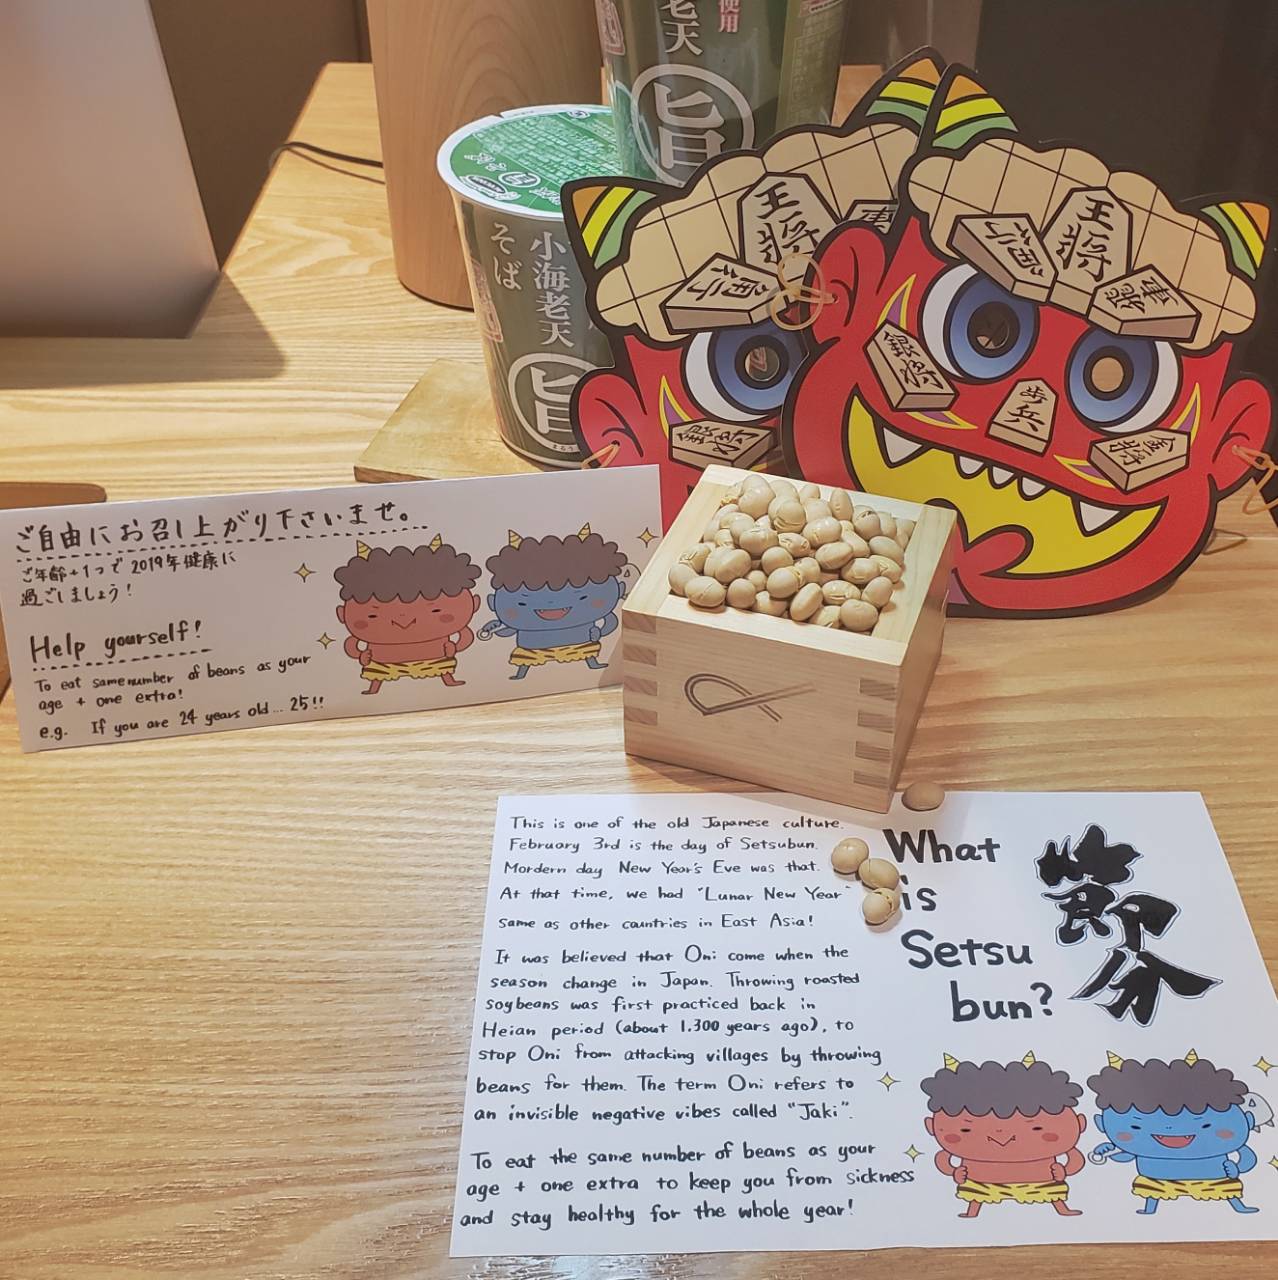 使用
老天
旨
そば
小海老天
旨
王将
王将
飛車
龍
銀将
歩兵
金将
ご自由にお召し上がり下さいませ。
ご年齢+1つで2019年健康に
過ごしましょう!
Help yourself!
To eat same number of beans as your
age + one extra!
e.g. If you are 24 years old... 25!!
This is one of the old Japanese culture.
February 3rd is the day of Setsubun.
Mordern day New Year's Eve was that.
At that time, we had "Lunar New Year"
same as other countries in East Asia!
It was believed that Oni come when the
season change in Japan. Throwing roasted
soybeans was first practiced back in
Heian period (about 1.300 years ago), to
stop Oni from attacking villages by throwing
beans for them. The term Oni refers to
an invisible negative vibes called "Jaki".
To eat the same number of beans as your
age + one extra to keep you from sickness
and stay healthy for the whole year!
What
is
Setsu
bun?
節分